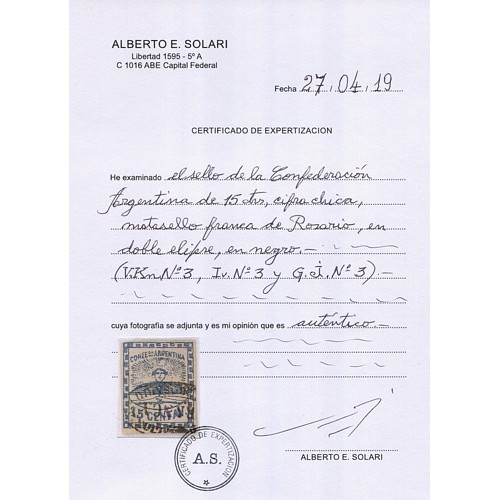 ALBERTO E. SOLARI
Libertad 1595 - 5º A
C 1016 ABE Capital Federal
Fecha 27/04/19
CERTIFICADO DE EXPERTIZACION
He examinado el sello de la Confederación
Argentina de 15 ctvs, cifra chica,
matasello franca de Rosario, en
doble elipse, en negro. -
(V.Kn Nº 3, Iv. Nº 3 y G.J. Nº 3) -
cuya fotografía se adjunta y es mi opinión que es auténtico. -
CONFEON ARGENTINA
15 CENTAV
CERTIFICADO DE EXPERTIZACION
A.S.
ALBERTO E. SOLARI